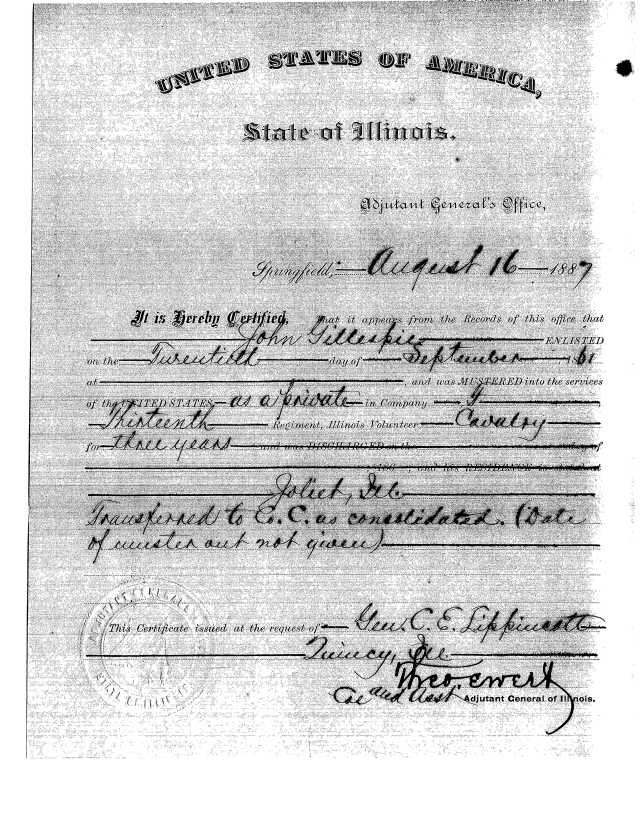 UNITED STATES OF AMERICA,
State of Illinois.
Adjutant General's Office,
Springfield, August 16 1887
It is Hereby Certified, That it appears from the Records of this office that
John Gillespie ENLISTED
on the Twentieth day of September 1861
at , and was MUSTERED into the services
of the UNITED STATES, as a private in Company
Thirteenth Regiment, Illinois Volunteer Cavalry
for three years and was DISCHARGED on the day of
186 , and his RESIDENCE is
Joliet, Ill.
Transferred to Co. C. as consolidated. (Date
of muster out not given)
This Certificate issued at the request of Gen. C. E. Lippincott
Quincy, Ill
Theo. Ewert
Col and Asst. Adjutant General of Illinois.